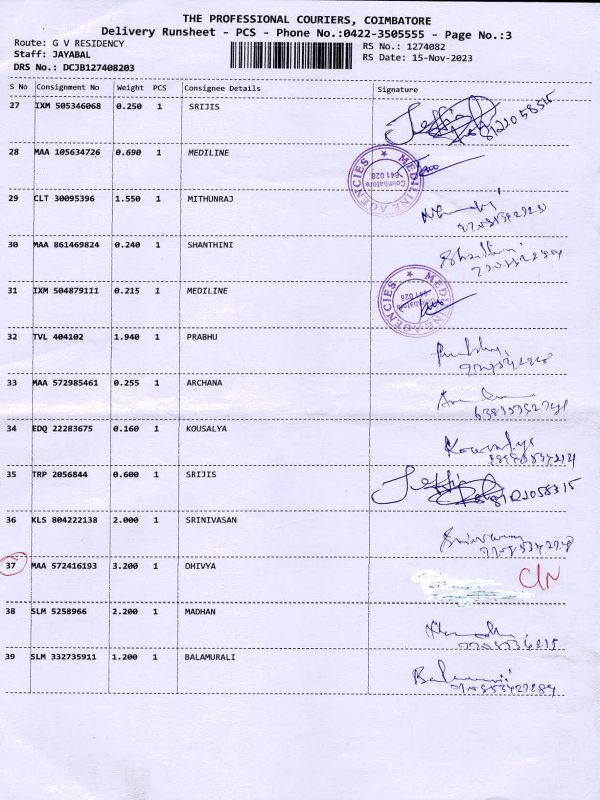 THE PROFESSIONAL COURIERS, COIMBATORE
Delivery Runsheet - PCS - Phone No.:0422-3505555 - Page No.:3
Route: G V RESIDENCY RS No.: 1274082
Staff: JAYABAL RS Date: 15-Nov-2023
DRS No.: DCJB127408203
S No Consignment No Weight PCS Consignee Details Signature
27 IXM 505346068 0.250 1 SRIJIS
8121058315
28 MAA 105634726 0.690 1 MEDILINE
MEDILINE AGENCIES
Coimbatore
641 028
29 CLT 30095396 1.550 1 MITHUNRAJ
30 MAA 861469824 0.240 1 SHANTHINI
31 IXM 504879111 0.215 1 MEDILINE
MEDILINE AGENCIES
Coimbatore
641 028
32 TVL 404102 1.940 1 PRABHU
33 MAA 572985461 0.255 1 ARCHANA
34 EDQ 22283675 0.160 1 KOUSALYA
Kousalya
35 TRP 2056844 0.600 1 SRIJIS
8121058315
36 KLS 804222138 2.000 1 SRINIVASAN
37 MAA 572416193 3.200 1 DHIVYA
C/N
38 SLM 5258966 2.200 1 MADHAN
39 SLM 332735911 1.200 1 BALAMURALI